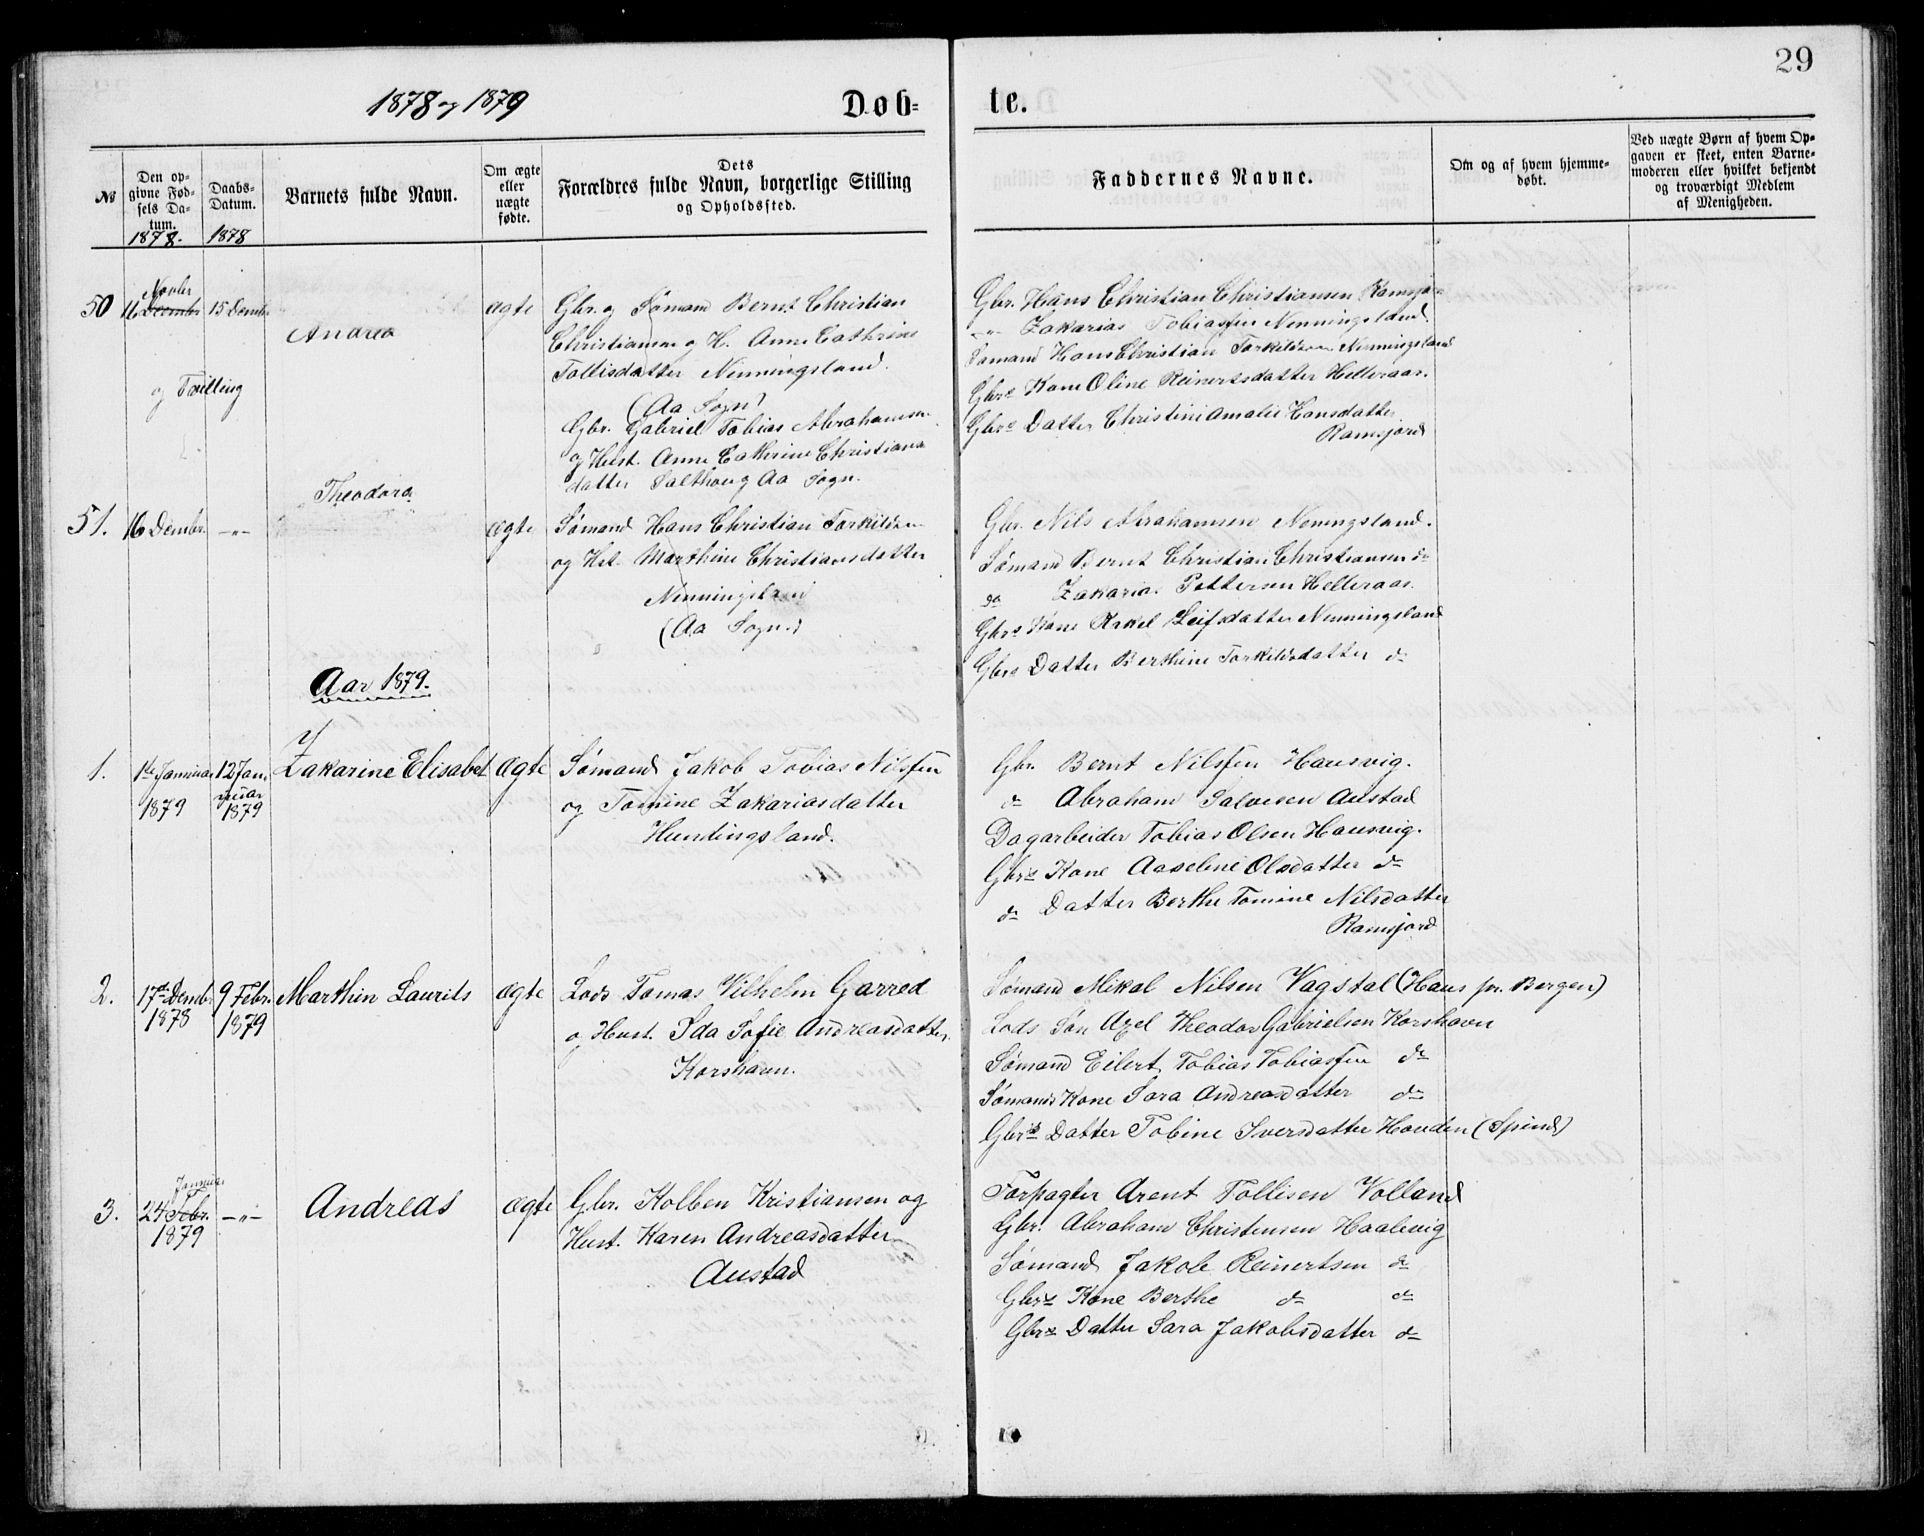 29
1878 og 1879
Døb-
te.
№
Den op-
givne Fød-
sels Da-
tum.
1878.
Daabs-
Datum.
1878
Barnets fulde Navn.
Om ægte
eller
uægte
fødte.
Dets
Forældres fulde Navn, borgerlige Stilling
og Opholdssted.
Faddernes Navne.
Om og af hvem hjemme-
døbt.
Ved uægte Børn af hvem Op-
gaven er skeet, enten Barne-
moderen eller hvilket bekjendt
og troværdigt Medlem
af Menigheden.
50
Novbr
11 Decembr
15 Dembr
Andrea
og Tvilling
ægte
Gbr. og Sømand Bernt Christian
Christiansen og H. Anne Cathrine
Tollisdatter Nenningsland.
(Aa Sogn)
Gbr. Hans Christian Christiansen Ramsjor
-"- Zakarias Tobiassen Nenningsland.
Sømand Hans Christian Torkildsen Nenningsland
Gbrs Kone Oline Reinertsdatter Helleraas.
Gbrs Datter Christine Amalie Hansdatter
Ramsjord
Gbr. Gabriel Tobias Abrahamsen
og Hust. Anne Cathrine Christians
datter Salthoug Aa Sogn.
51.
16 Dembr.
-"-
Theodora
ægte
Sømand Hans Christian Torkildsen
og Hst. Marthine Christiansdatter
Nenningsland
(Aa Sogn.)
Gbr. Nils Abrahamsen Neningsland.
Sømand Bernt Christian Christiansen do
do Zakarias Pettersen Helleraas.
Gbrs Kone Rakel Leifsdatter Nenningsland
Gbrs Datter Berthine Torkildsdatter do
Aar 1879.
1.
1ste Januar
1879
12 Jan
nuar
1879
Zakarine Elisabet
ægte
Sømand Jakob Tobias Nilssen
og Tomine Zakariasdatter
Hundingsland.
Gbr. Bernt Nilssen Hausvig.
do Abraham Salvesen Austad
Dagarbeider Tobias Olsen Hausvig.
Gbrs Kone Aaseline Olsdatter do
do Datter Berthe Tomine Nilsdatter
Ramsjord
2.
17de Dembr
1878
9 Febr.
1879
Marthin Laurits
ægte
Lods Tomas Vilhelm Garred
og Hust. Ida Sofie Andreasdatter,
Korshavn.
Sømand Mikal Nilsen Vagstal (Haus pr. Bergen)
Lods Søn Axel Theodor Gabrielsen Korshavn
Sømand Eilert Tobias Tobiassen do
Sømands Kone Sara Andreasdatter do
Gbrs Datter Tobine Iversdatter Houden (Spind)
3.
Januar
24 Febr.
1879
-"-
Andreas
ægte
Gbr. Kolben Kristiansen og
Hust. Karen Andreasdatter
Austad
Forpagter Arent Tollisen Volland
Gbr. Abraham Christensen Haalevig
Sømand Jakob Reinertsen do
Gbrs Kone Berthe do do
Gbrs Datter Sara Jakobsdatter do